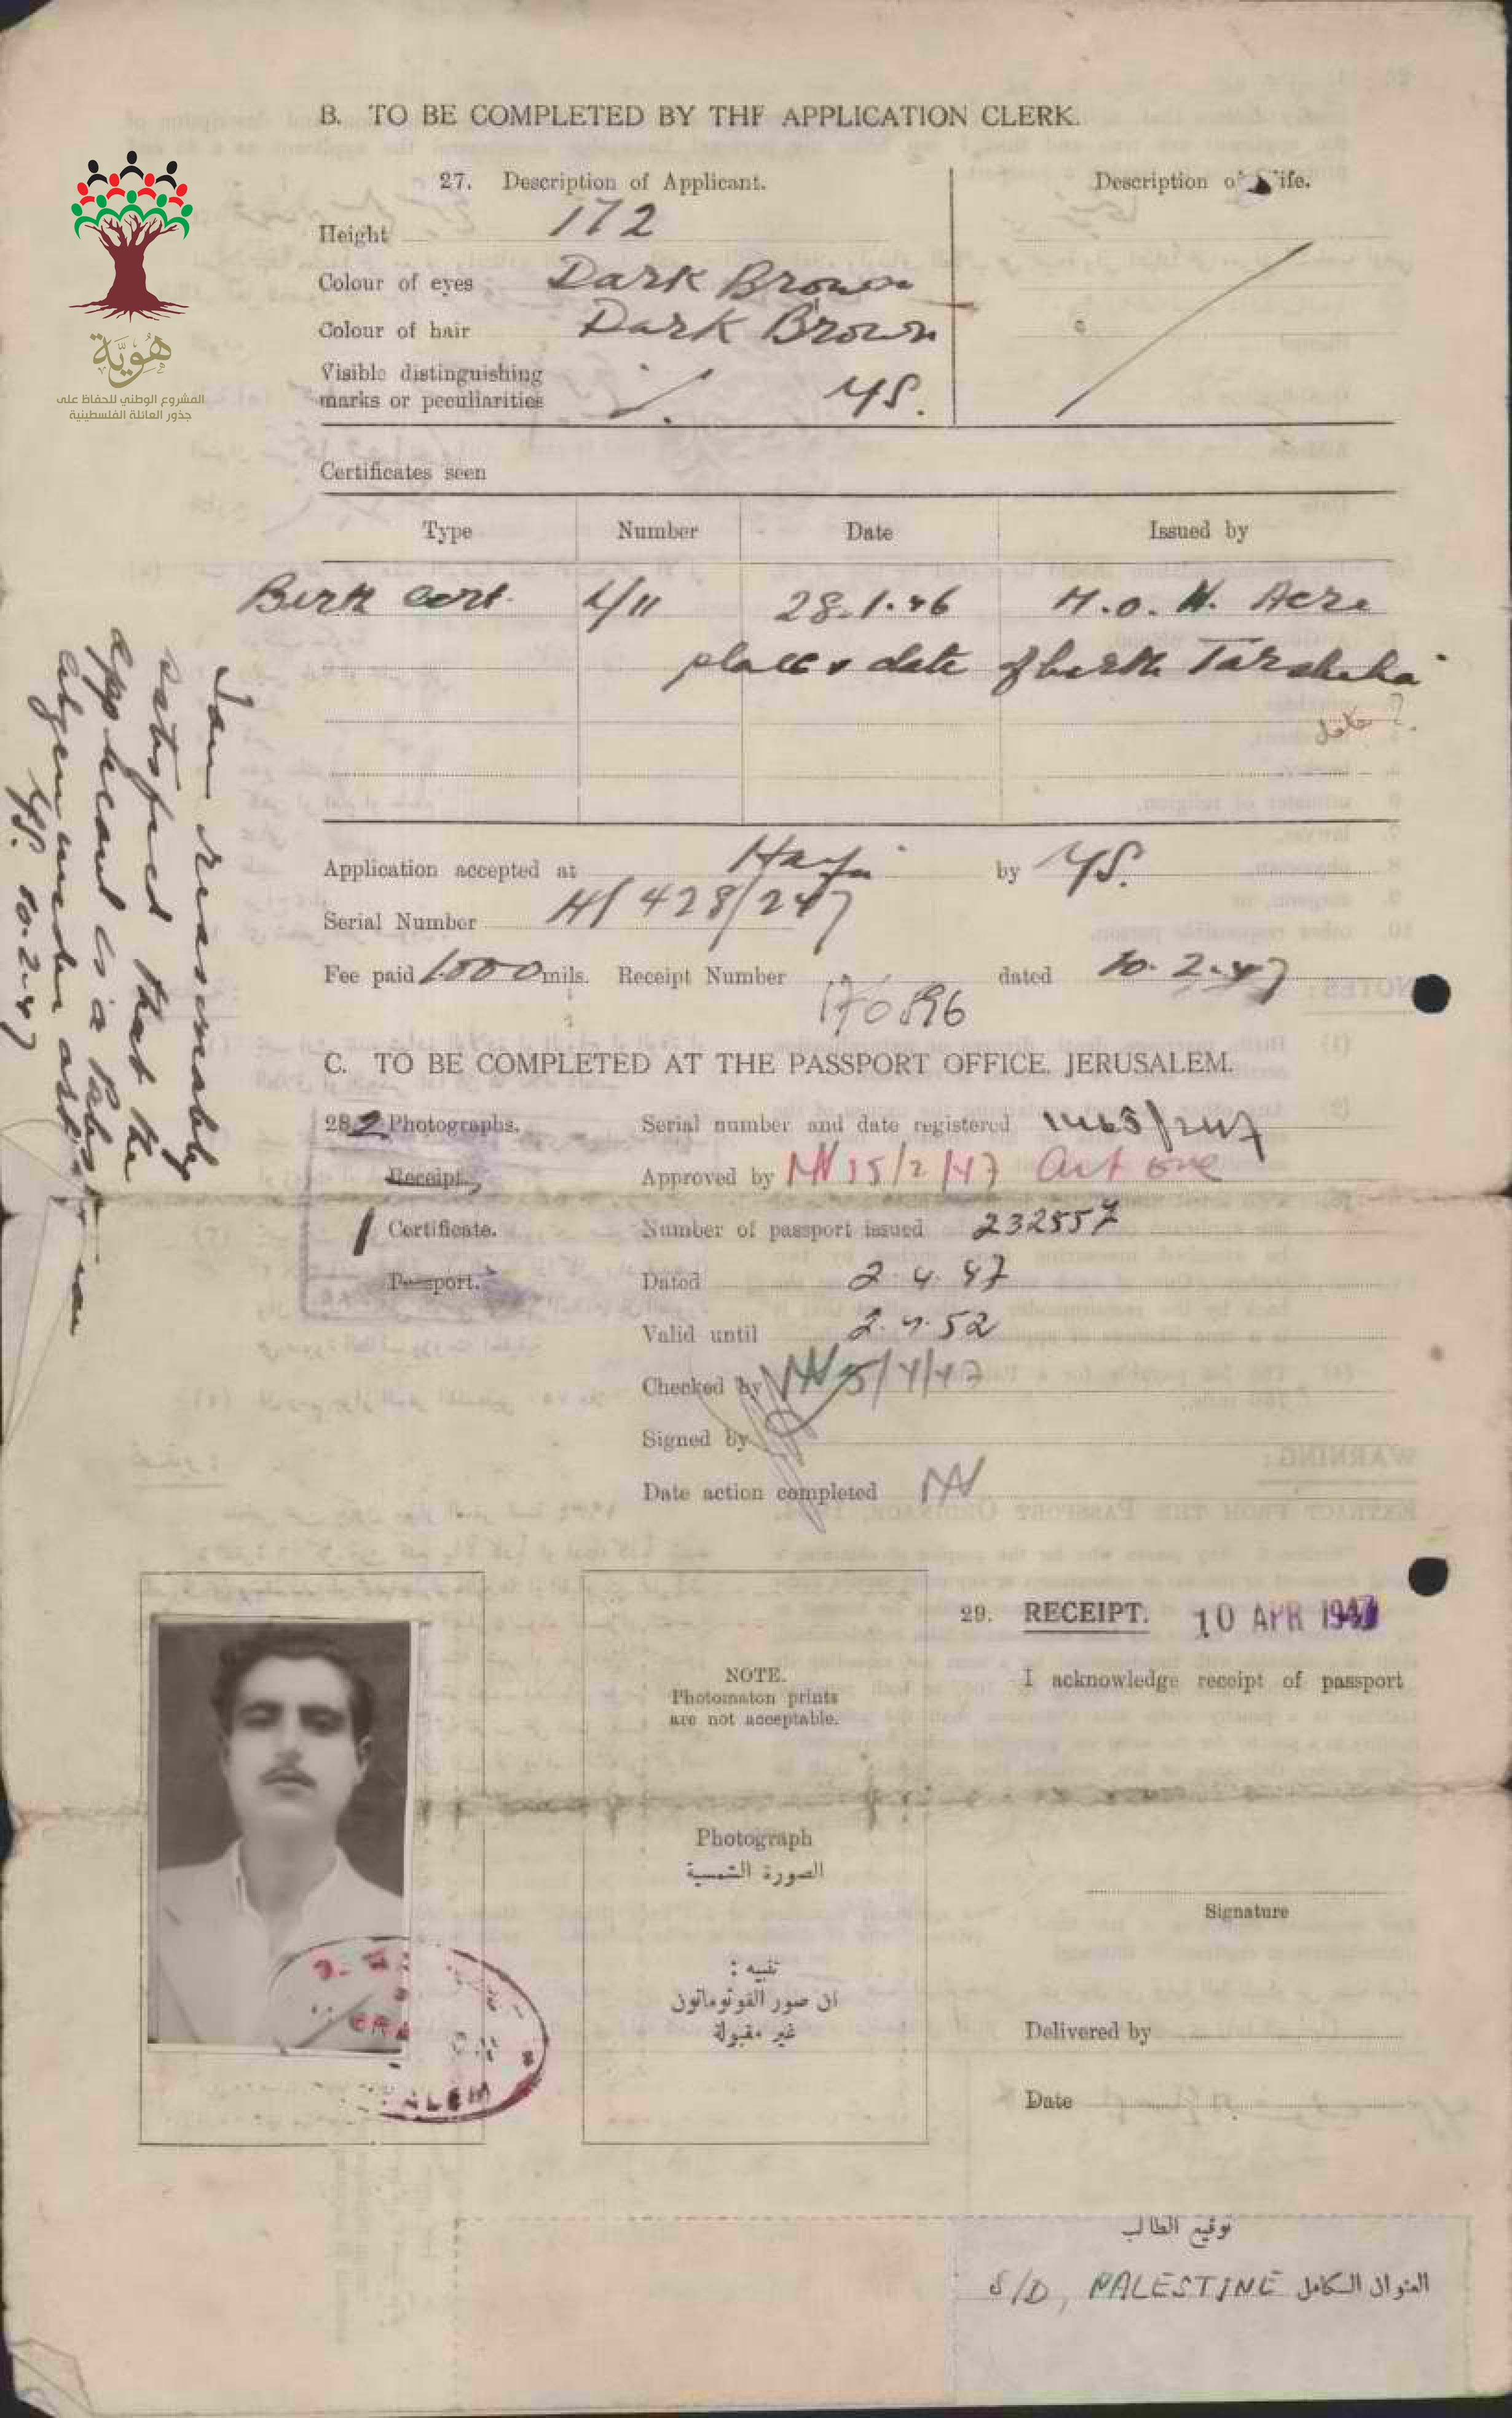 B. TO BE COMPLETED BY THE APPLICATION CLERK.
هُوِيَّة
المشروع الوطني للحفاظ على
جذور العائلة الفلسطينية
27. Description of Applicant.
Description of Wife.
Height 172
Colour of eyes Dark Brown
Colour of hair Dark Brown
Visible distinguishing
marks or peculiarities YS.
Certificates seen
Type Number Date Issued by
Birth cert. 4/11 28.1.46 M.O.H. Acre
place & date of birth Tarshiha
Application accepted at Haifa by YS.
Serial Number H/428/247
Fee paid 1.500 mils. Receipt Number 170896 dated 10.2.47
I am reasonably
satisfied that the
applicant is a
YS. 10.2.47
C. TO BE COMPLETED AT THE PASSPORT OFFICE, JERUSALEM.
28. 2 Photographs.
Receipt.
1 Certificate.
Passport.
Serial number and date registered 1463/247
Approved by 15/2/47 Art one
Number of passport issued 232557
Dated 2.4.47
Valid until 2.4.52
Checked by 5/4/47
Signed by
Date action completed
NOTE.
Photomaton prints
are not acceptable.
Photograph
الصورة الشمسية
تنبيه :
ان صور الفوتوماتون
غير مقبولة
29. RECEIPT. 10 APR 1947
I acknowledge receipt of passport
Signature
Delivered by
Date
توقيع الطالب
العنوان الكامل S/D, PALESTINE